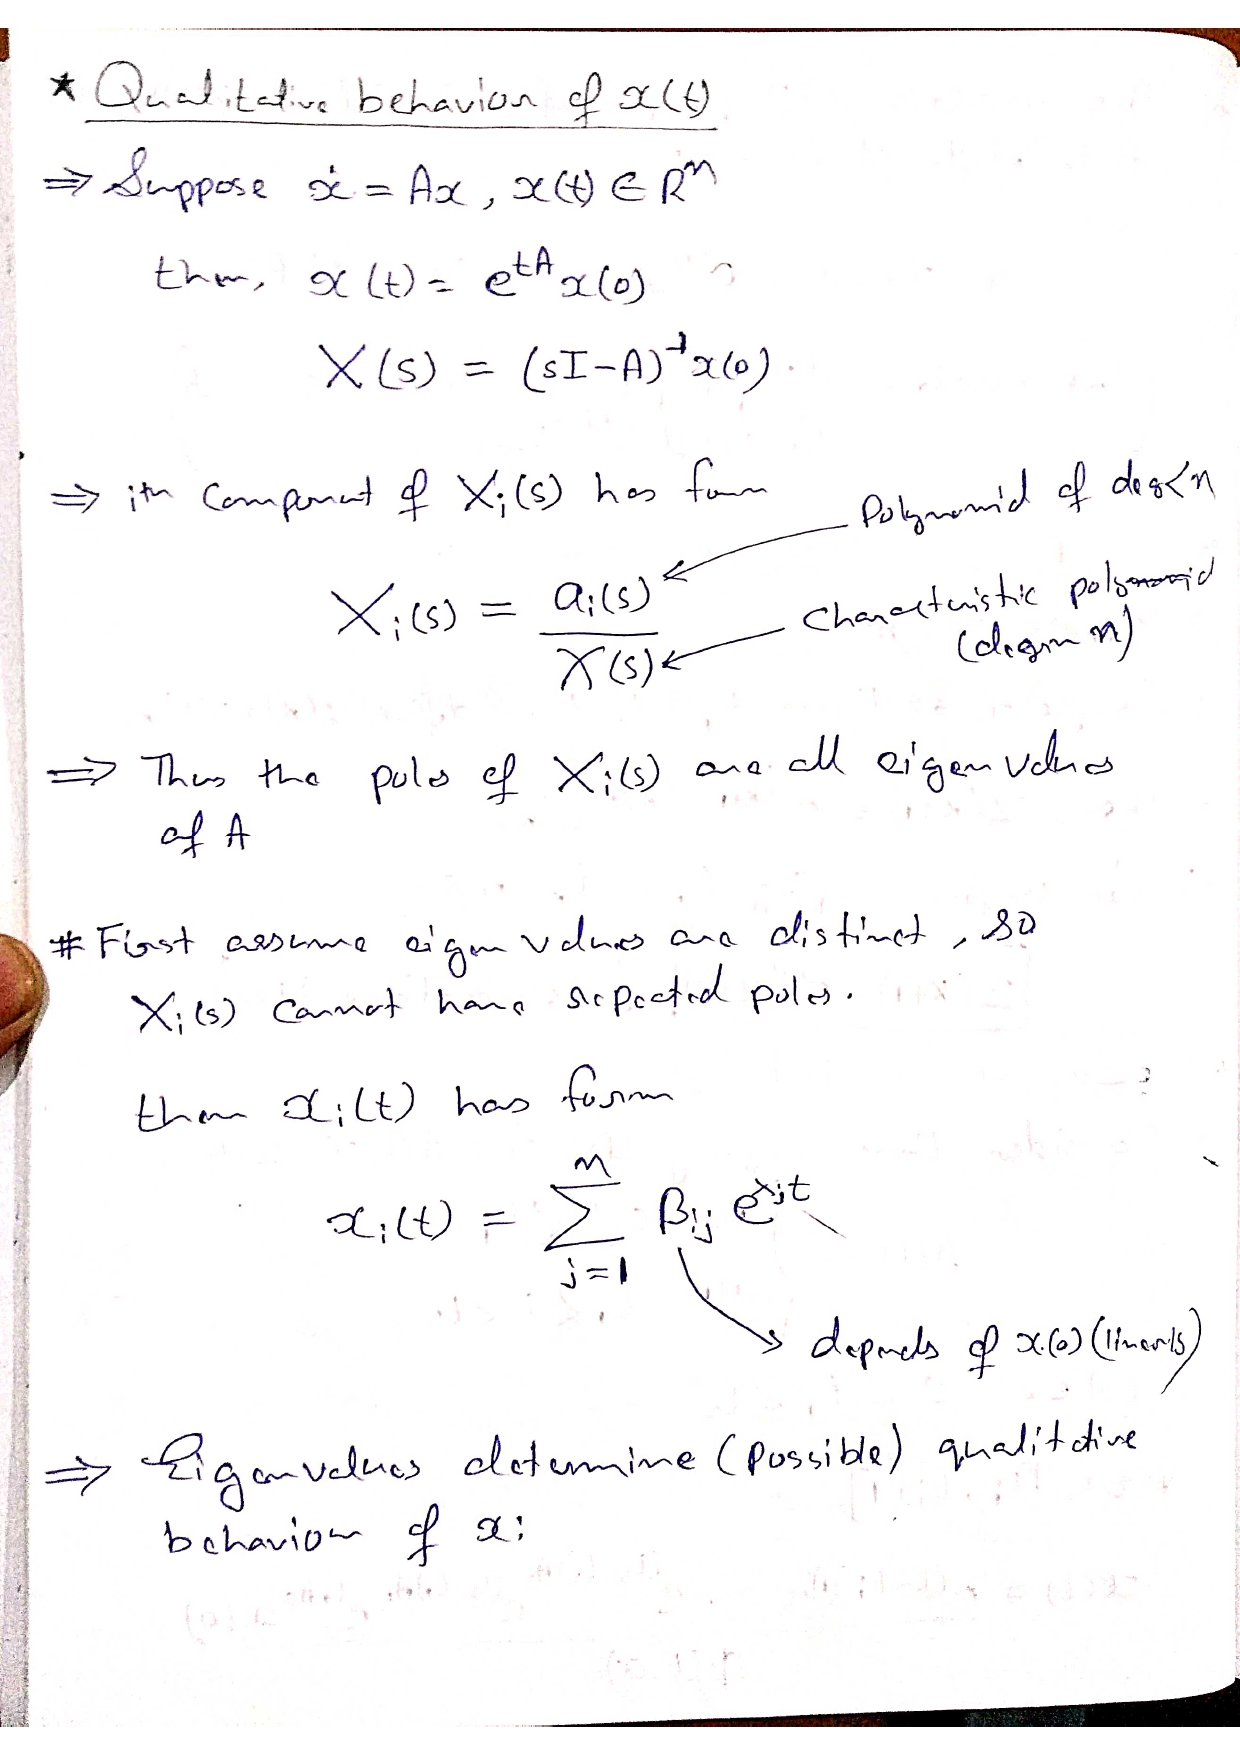 ★ Qualitative behavior of x(t)
⇒ Suppose ẋ = Ax, x(t) ∈ Rⁿ
then, x(t) = e^{tA} x(0)
X(s) = (sI-A)⁻¹ x(0)
⇒ ith Component of Xᵢ(s) has form
Polynomial of deg<n
Xᵢ(s) = aᵢ(s) / X(s)
Characteristic polynomial
(degree n)
⇒ Thus the poles of Xᵢ(s) are all eigenvalues
of A
# First assume eigenvalues are distinct, so
Xᵢ(s) cannot have repeated poles.
then xᵢ(t) has form
xᵢ(t) = Σ_{j=1}^{n} βᵢⱼ e^{λⱼt}
depends of x(0) (linearly)
⇒ Eigenvalues determine (possible) qualitative
behavior of x: